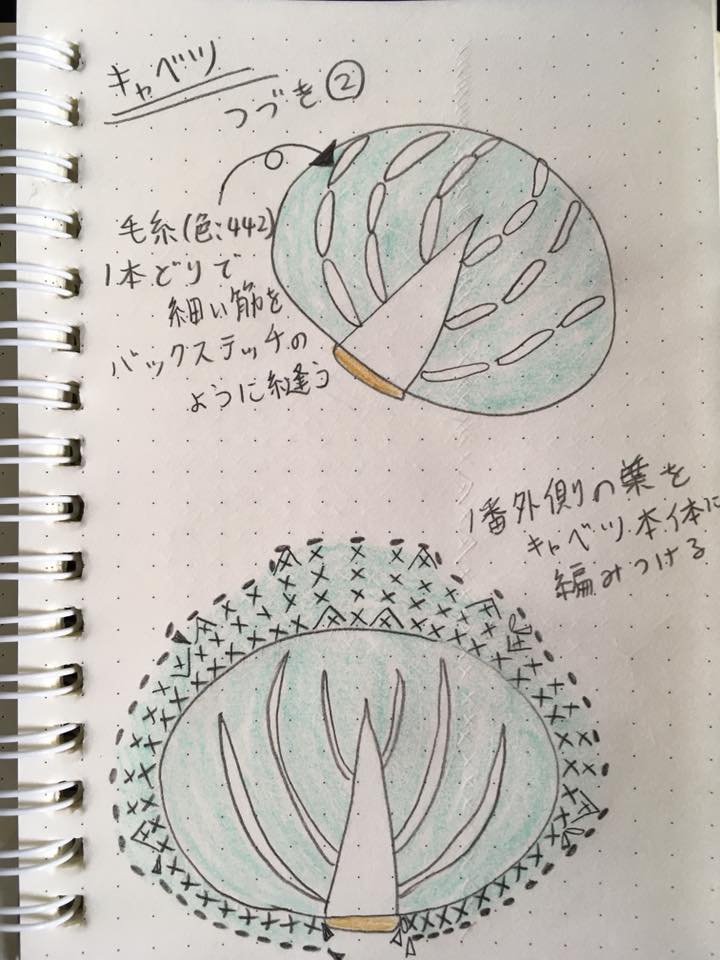 キャベツ
つづき②
毛糸(色:442)
1本どりで
細い筋を
バックステッチの
ように縫う
1番外側の葉を
キャベツ本体に
編みつける